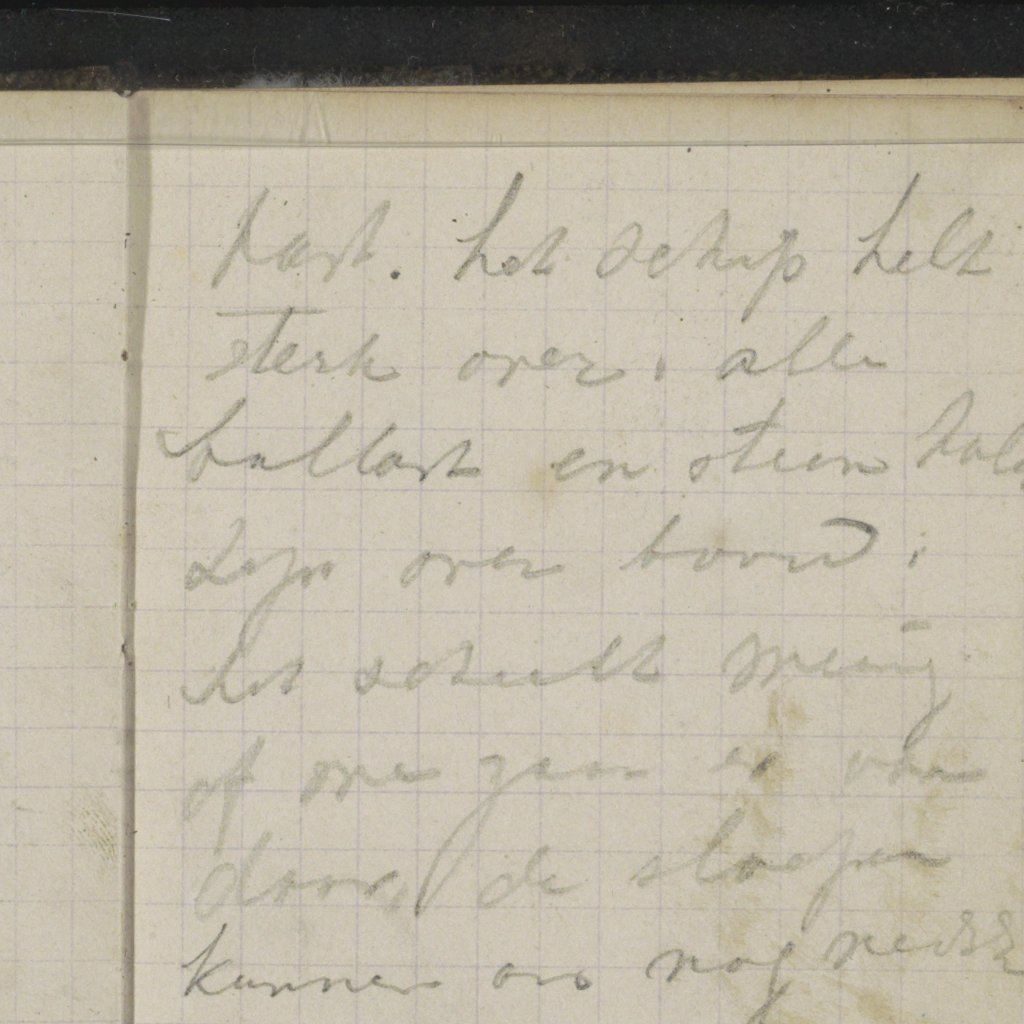 kast. het schip helt
sterk over. alle
ballast en steen kole
zijn over boord.
het scheelt weinig
of we gaan er van
door, de sloepen
kunnen ons nog redde